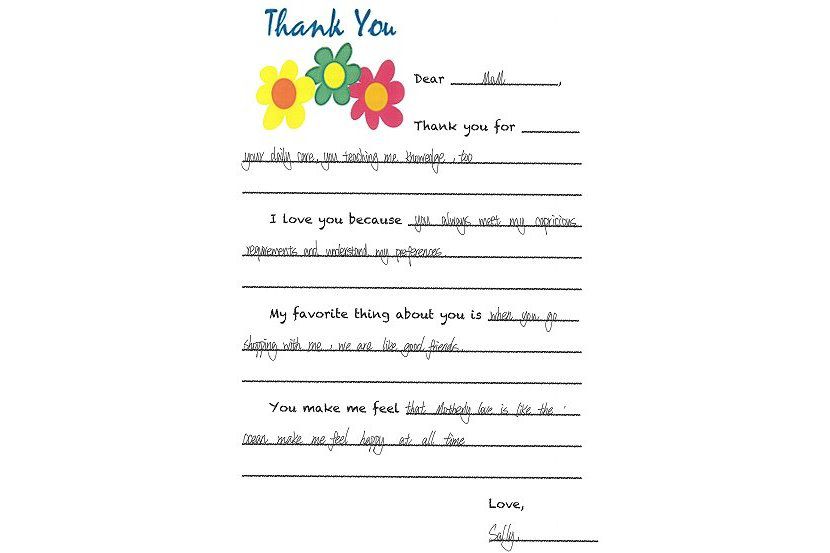 Thank You
Dear Mom,
Thank you for
your daily care, you teaching me knowledge, too
I love you because you always meet my capricious
requirements and understand my preferences
My favorite thing about you is when you go
shopping with me, we are like good friends.
You make me feel that Motherly love is like the
ocean make me feel happy at all time
Love,
Sally.